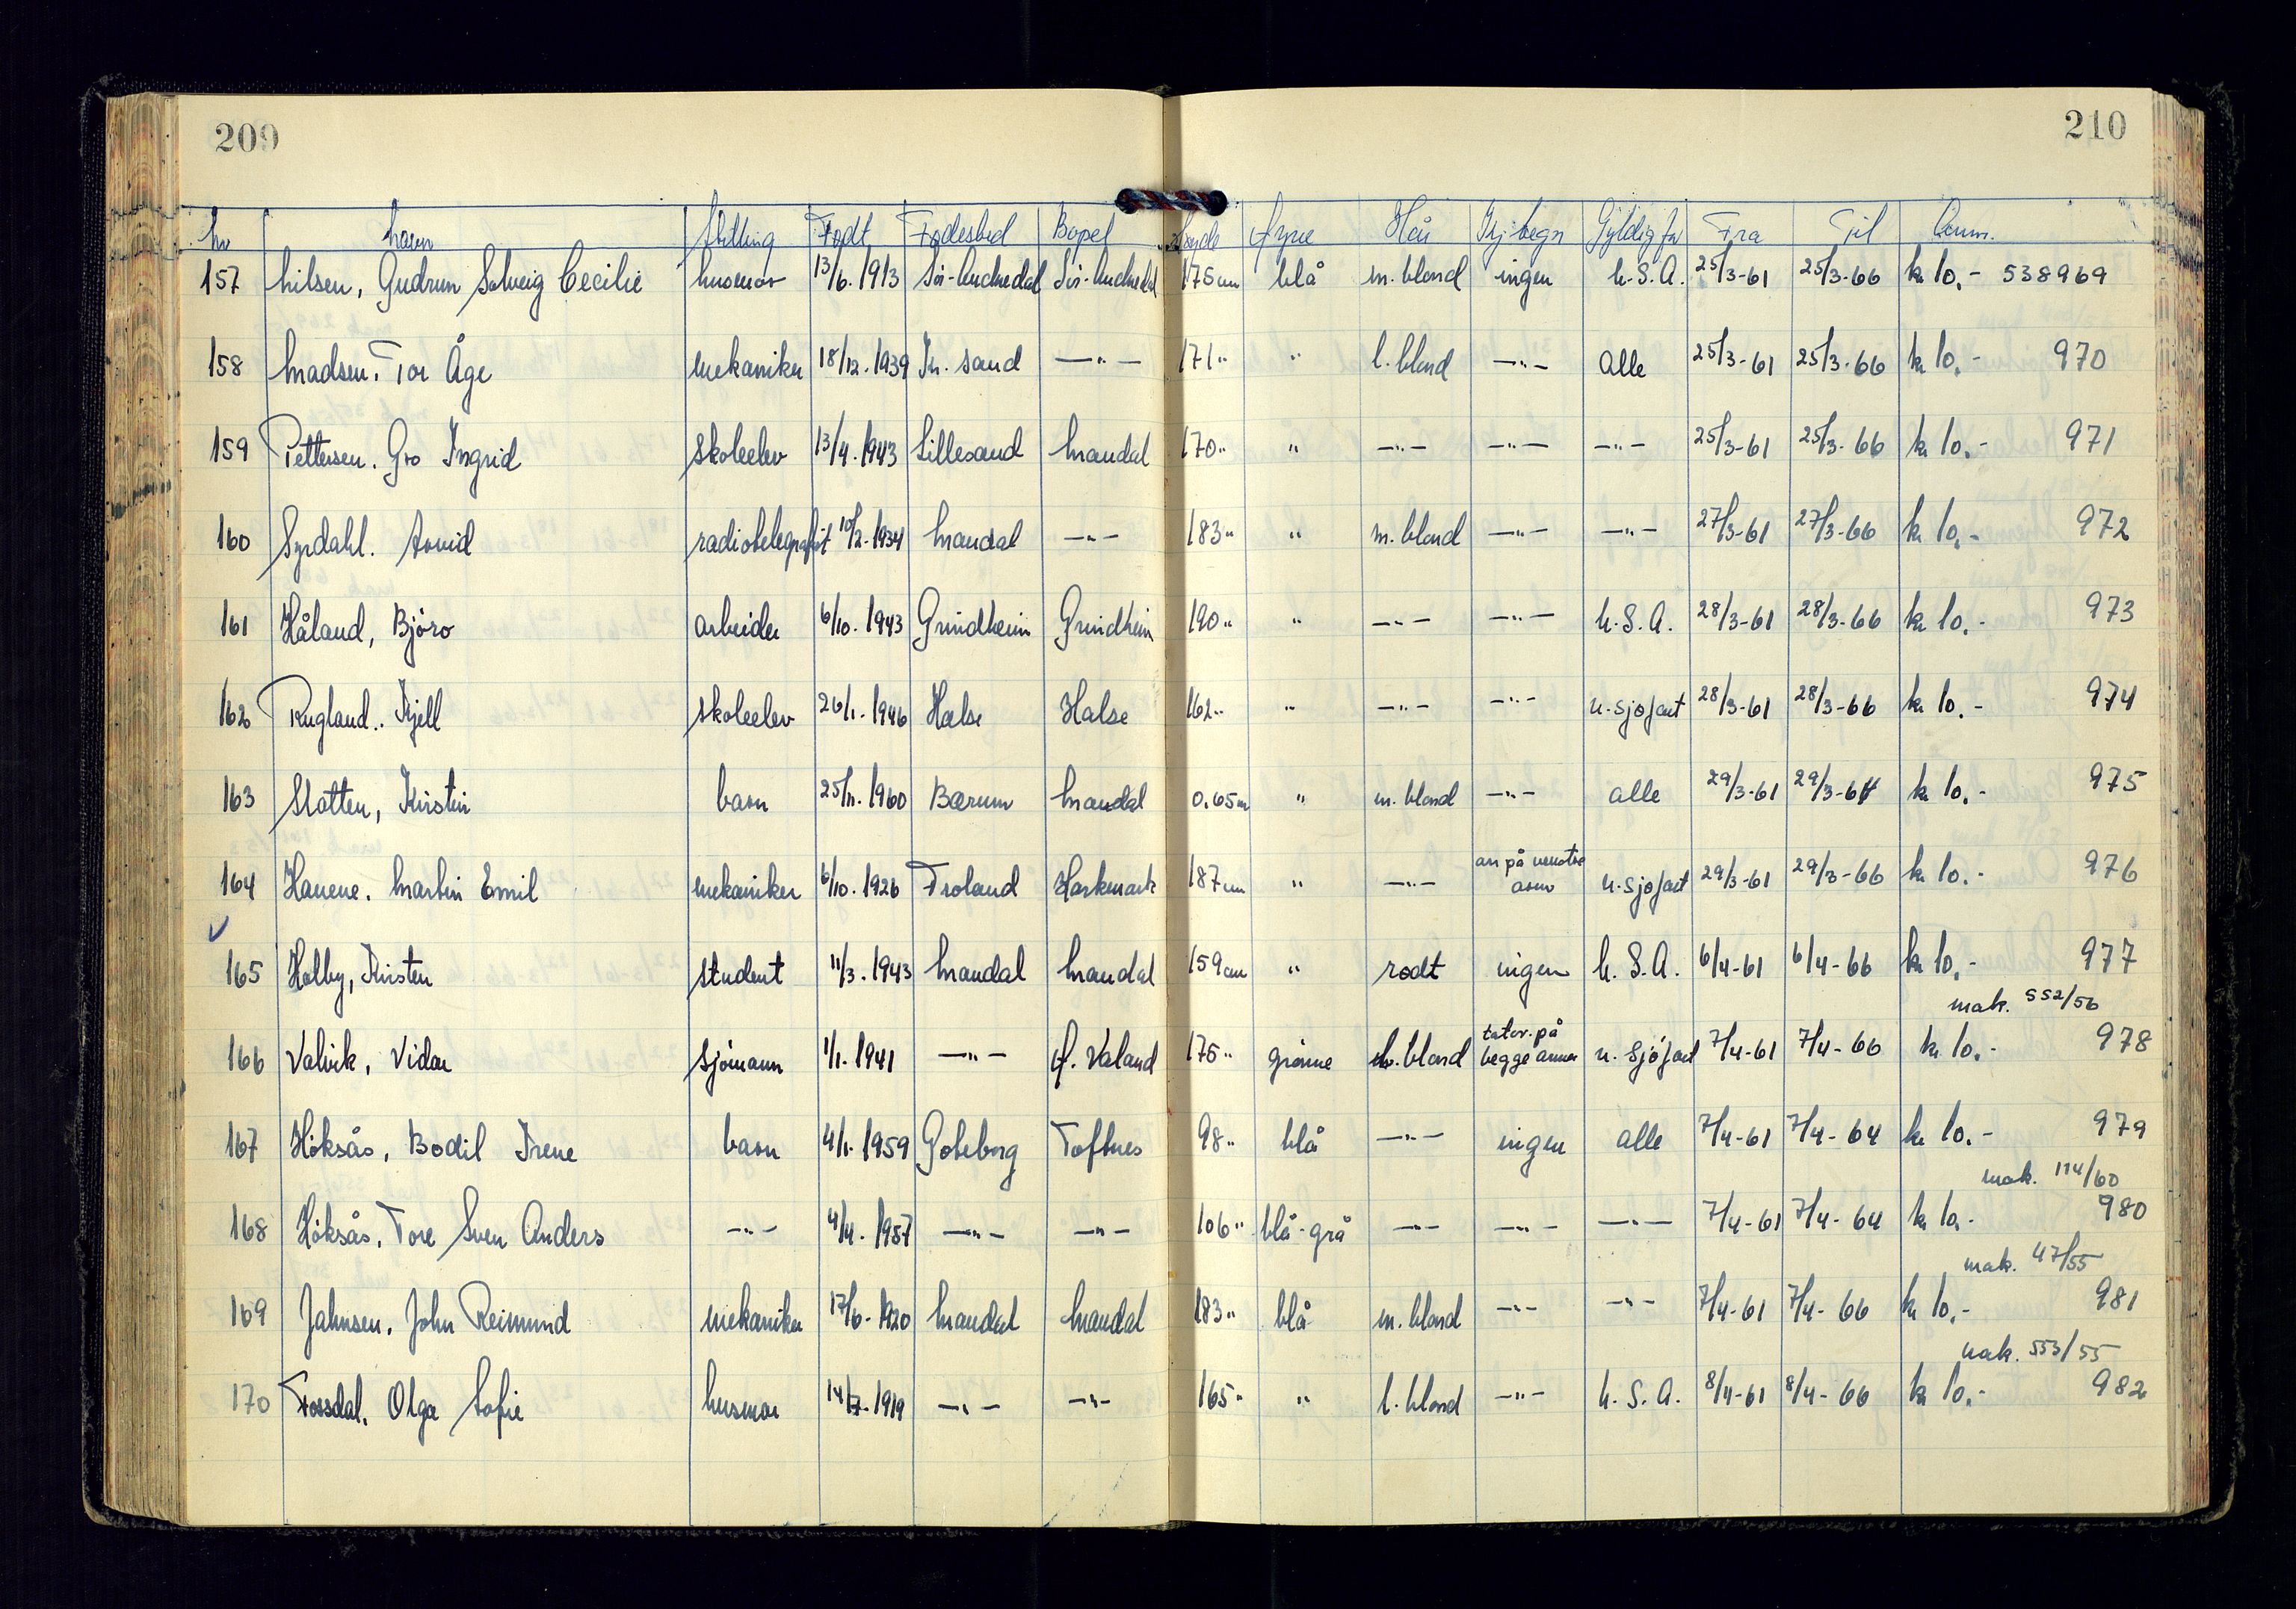 209
210
Nr Navn Stilling Født Fødested Bopel Høyde Øyne Hår Kj.tegn Gyldig for Fra Til Anm.
157 Nilsen, Gudrun Solveig Cecilie husmor 13/6. 1913 Sör-Audnedal Sör-Audnedal 175 cm blå m. blond ingen U.S.A. 25/3-61 25/3-66 kr 10.- 538969
158 Madsen, Tor Åge mekaniker 18/12. 1939 Kr. sand —"— 171 " " l. blond —"— Alle 25/3-61 25/3-66 kr 10.- 970
159 Pettersen. Gro Ingrid skoleelev 13/4. 1943 Lillesand Mandal 170 " " —"— —"— —"— 25/3-61 25/3-66 kr 10.- 971
160 Syrdahl. Arvid radiotelegrafist 10/2. 1934 Mandal —"— 183 " " m. blond —"— —"— 27/3-61 27/3-66 kr 10.- 972
161 Håland, Björo arbeider 6/10. 1943 Grindheim Grindheim 190 " " —"— —"— U.S.A. 28/3-61 28/3-66 kr 10.- 973
162 Rugland.. Kjell skoleelev 26/1. 1946 Halse Halse 162 " " —"— —"— u.sjøfart 28/3-61 28/3-66 kr 10.- 974
163 Slotten, Kirstin barn 25/11. 1960 Bærum Mandal 0.65 m " m. blond —"— alle 29/3-61 29/3-64 kr 10.- 975
164 Hauene. Martin Emil mekaniker 6/10. 1926 Froland Harkmark 187 cm " —"— arr på venstre arm u.sjøfart 29/3-61 29/3-66 kr 10.- 976
165 Holby, Kirsten student 11/3. 1943 Mandal Mandal 159 cm " rødt ingen U.S.A. 6/4-61 6/4-66 kr 10.- 977
mak. 552/56
166 Valvik, Vidar sjömann 1/1. 1941 —"— Ö. Valand 175 " grönne m. blond tator. på begge armer u. sjöfart 7/4-61 7/4-66 kr 10.- 978
167 Höksås, Bodil Irene barn 4/1. 1959 Göteborg Toftnes 98 " blå —"— ingen alle 7/4-61 7/4-64 kr 10.- 979
mak. 114/60
168 Höksås, Tore Sven Anders —"— 4/4. 1957 —"— —"— 106 " blå-grå —"— —"— —"— 7/4-61 7/4-64 kr 10.- 980
mak. 47/55
169 Jahnsen, John Reimund mekaniker 17/6. 1920 Mandal Mandal 183 " blå m. blond —"— —"— 7/4-61 7/4-66 kr 10.- 981
mak. 553/55
170 Fossdal, Olga Sofie husmor 14/7. 1919 —"— —"— 165 " " l. blond —"— U.S.A. 8/4-61 8/4-66 kr 10.- 982